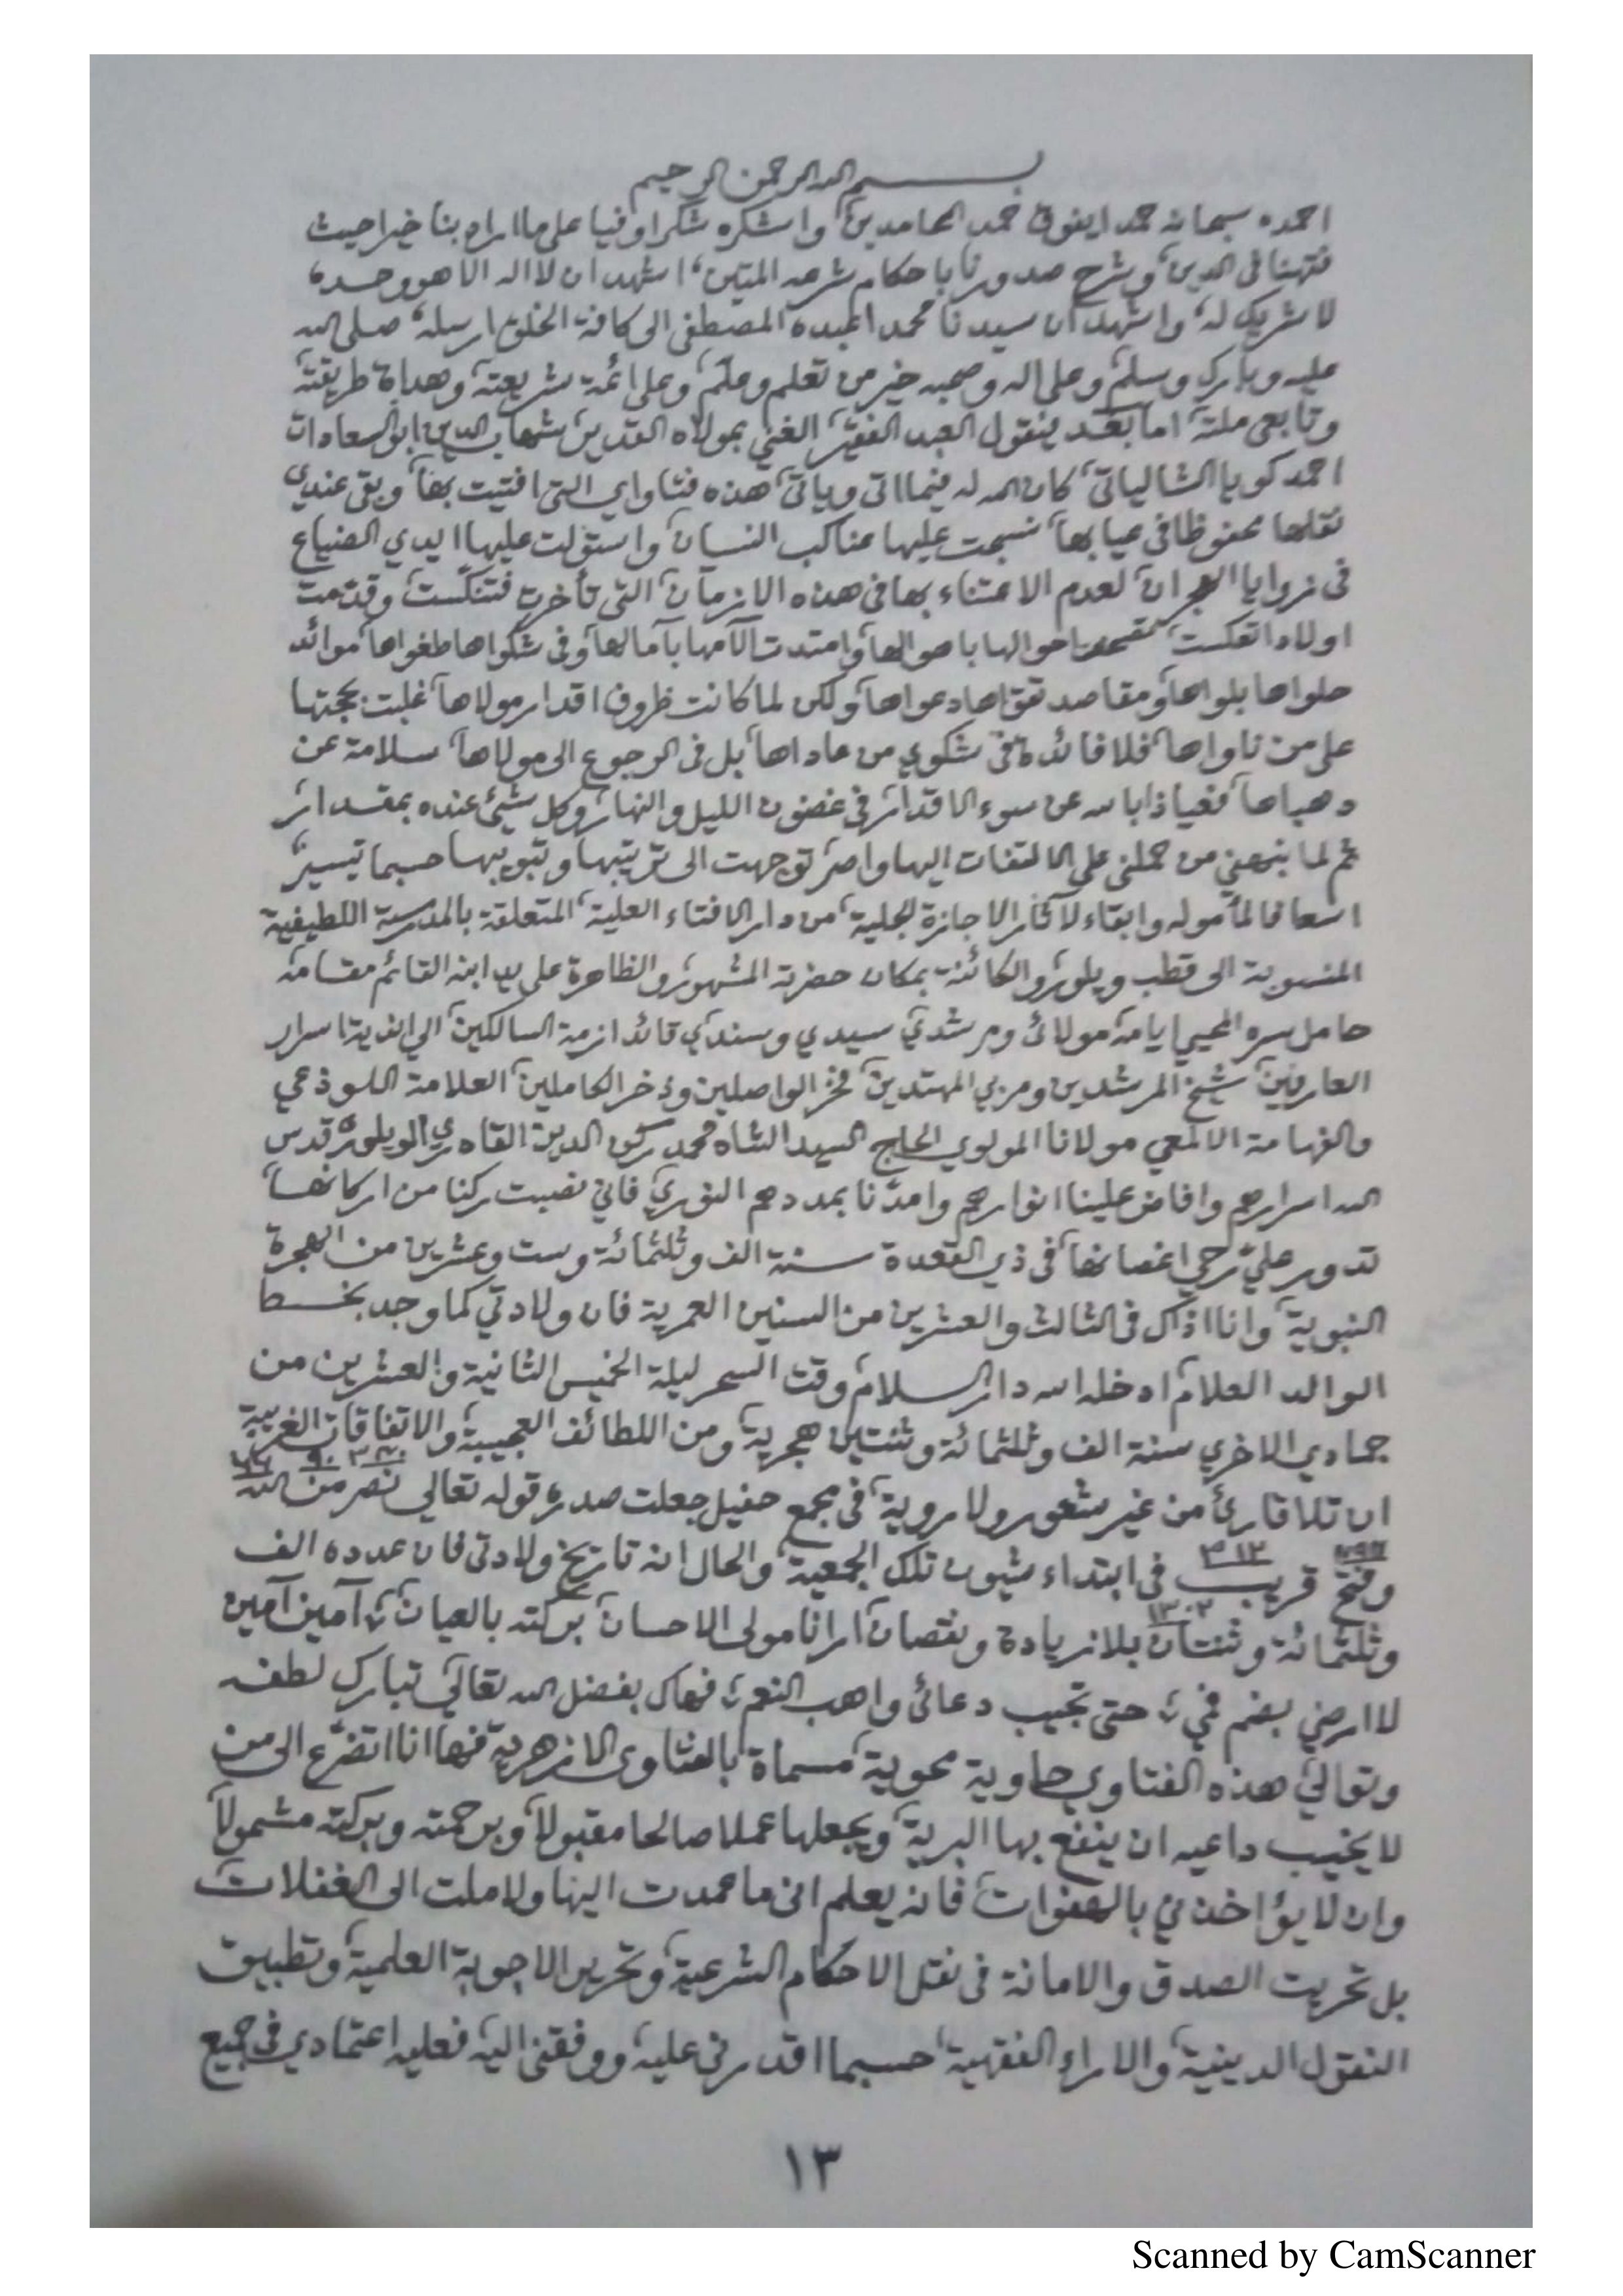 بسم الله الرحمن الرحيم
احمده سبحانه حمدا يفوق حمد الحامدين، واشكره شكرا وفيا على ما اراد بنا خيرا حيث
فقهنا فى الدين، وشرح صدورنا باحكام شرعه المتين، اشهد ان لا اله الا هو وحده،
لا شريك له، واشهد ان سيدنا محمدا عبده المصطفى الى كافة الخلق ارسله، صلى الله
عليه وبارك وسلم، وعلى اله وصحبه خير من تعلم وعلّم، وعلى ائمة شريعته، وهداة طريقته،
وتابعى ملته، اما بعد فيقول العبد الفقير، الغني بمولاه القدير، شهاب الدين ابو السعادات
احمد كويا الشالياتى، كان الله له فيما اتى وياتى، هذه فتاواي التى افتيت بها، وبقى عندي
نقلها محفوظا فى عيابها، نسجت عليها عناكب النسيان، واستولت عليها ايدي الضياع
فى زوايا الهجران، لعدم الاعتناء بها فى هذه الازمان، التى تأخرت فتنكّست، وقدّمت
اولادا تعكست، احوالها باهوالها، وامتدت الآمها بآمالها، وفى شكواها طغواها، موائد
حلواها بلواها، ومقاصد تقواها دعواها، ولكن لما كانت ظروف اقدار مولاها، غلبت بحجتها
على من ناواها، فلا فائدة فى شكوي من عاداها، بل فى الرجوع الى مولاها، سلامة عن
دهياها، فعياذا بالله عن سوء الاقدار، فى غضون الليل والنهار، وكل شيئ عنده بمقدار،
ثم لما نبهني من حملنى على الالتفات اليها واصر، توجهت الى ترتيبها وتبويبها حسبما تيسر،
اسعافا لمأموله وابقاء لآثار الاجازة الجلية، من دار الافتاء العلية، المتعلقة بالمدرسة اللطيفية
المنسوبة الى قطب ويلور، والكائنة بمكان حضرة المشهور، والظاهرة على يد ابنه القائم مقامه،
حامل سره المحيي ايامه، مولائ ومرشدي، سيدي وسندي، قائد ازمة السالكين، الي اندية اسرار
العارفين، شيخ المرشدين ومربي المهتدين، فخر الواصلين وذخر الكاملين، العلامة اللوذعي
والفهامة الالمعي مولانا المولوي الحاج السيد الشاه محمد ركن الدين القادري الويلوري، قدس
الله اسرارهم وافاض علينا انوارهم وامدّنا بمددهم النوري، فاني نصبت ركنا من اركانها،
تدور عليّ رحي اغصانها، فى ذي القعدة سنة الف وثلثمائة وست وعشرين من الهجرة
النبوية، وانا اذاك فى الثالث والعشرين من السنين العمرية، فان ولادتي كما وجد بخط
الوالد العلام، ادخله الله دار السلام، وقت السحر ليلة الخميس الثانية والعشرين من
جمادي الاخري سنة الف وثلثمائة وثنتين هجرية، ومن اللطائف العجيبة، والاتفاقات الغريبة،
ان تلا قارئ من غير شعور ولا روية، فى مجمع حفيل جعلت صدره قوله تعالي نصر من الله
٣٤٠ ٩٠ ٦٦
وفتح قريب فى ابتداء شيون تلك الجمعية، والحال انه تاريخ ولادتى فان عدده الف
٣١٢
وثلثمائة وثنتان بلا زيادة ونقصان، ارانا مولى الاحسان، بركته بالعيان، آمين آمين
١٣٠٢
لا ارضي بضم فمي، حتى تجيب دعائى واهب النعم، فهاك بفضل الله تعالي، تبارك لطفه
وتوالي، هذه الفتاوي حاوية محوية، مسماة بالفتاوى الازهرية، فها انا اتضرّع الى من
لا يخيب داعيه ان ينفع بها البرية، ويجعلها عملا صالحا مقبولا، وبرحمته وبركته مشمولا،
وان لا يؤاخذني بالهفوات، فانه يعلم انى ما عمدت اليها ولا ملت الى الغفلات،
بل تحريت الصدق والامانة فى نقل الاحكام الشرعية، وتحرير الاجوبة العلمية، وتطبيق
النقول الدينية، والاراء الفقهية، حسبما اقدرنى عليه، ووفقنى اليه، فعليه اعتمادي فى جميع
١٣
Scanned by CamScanner